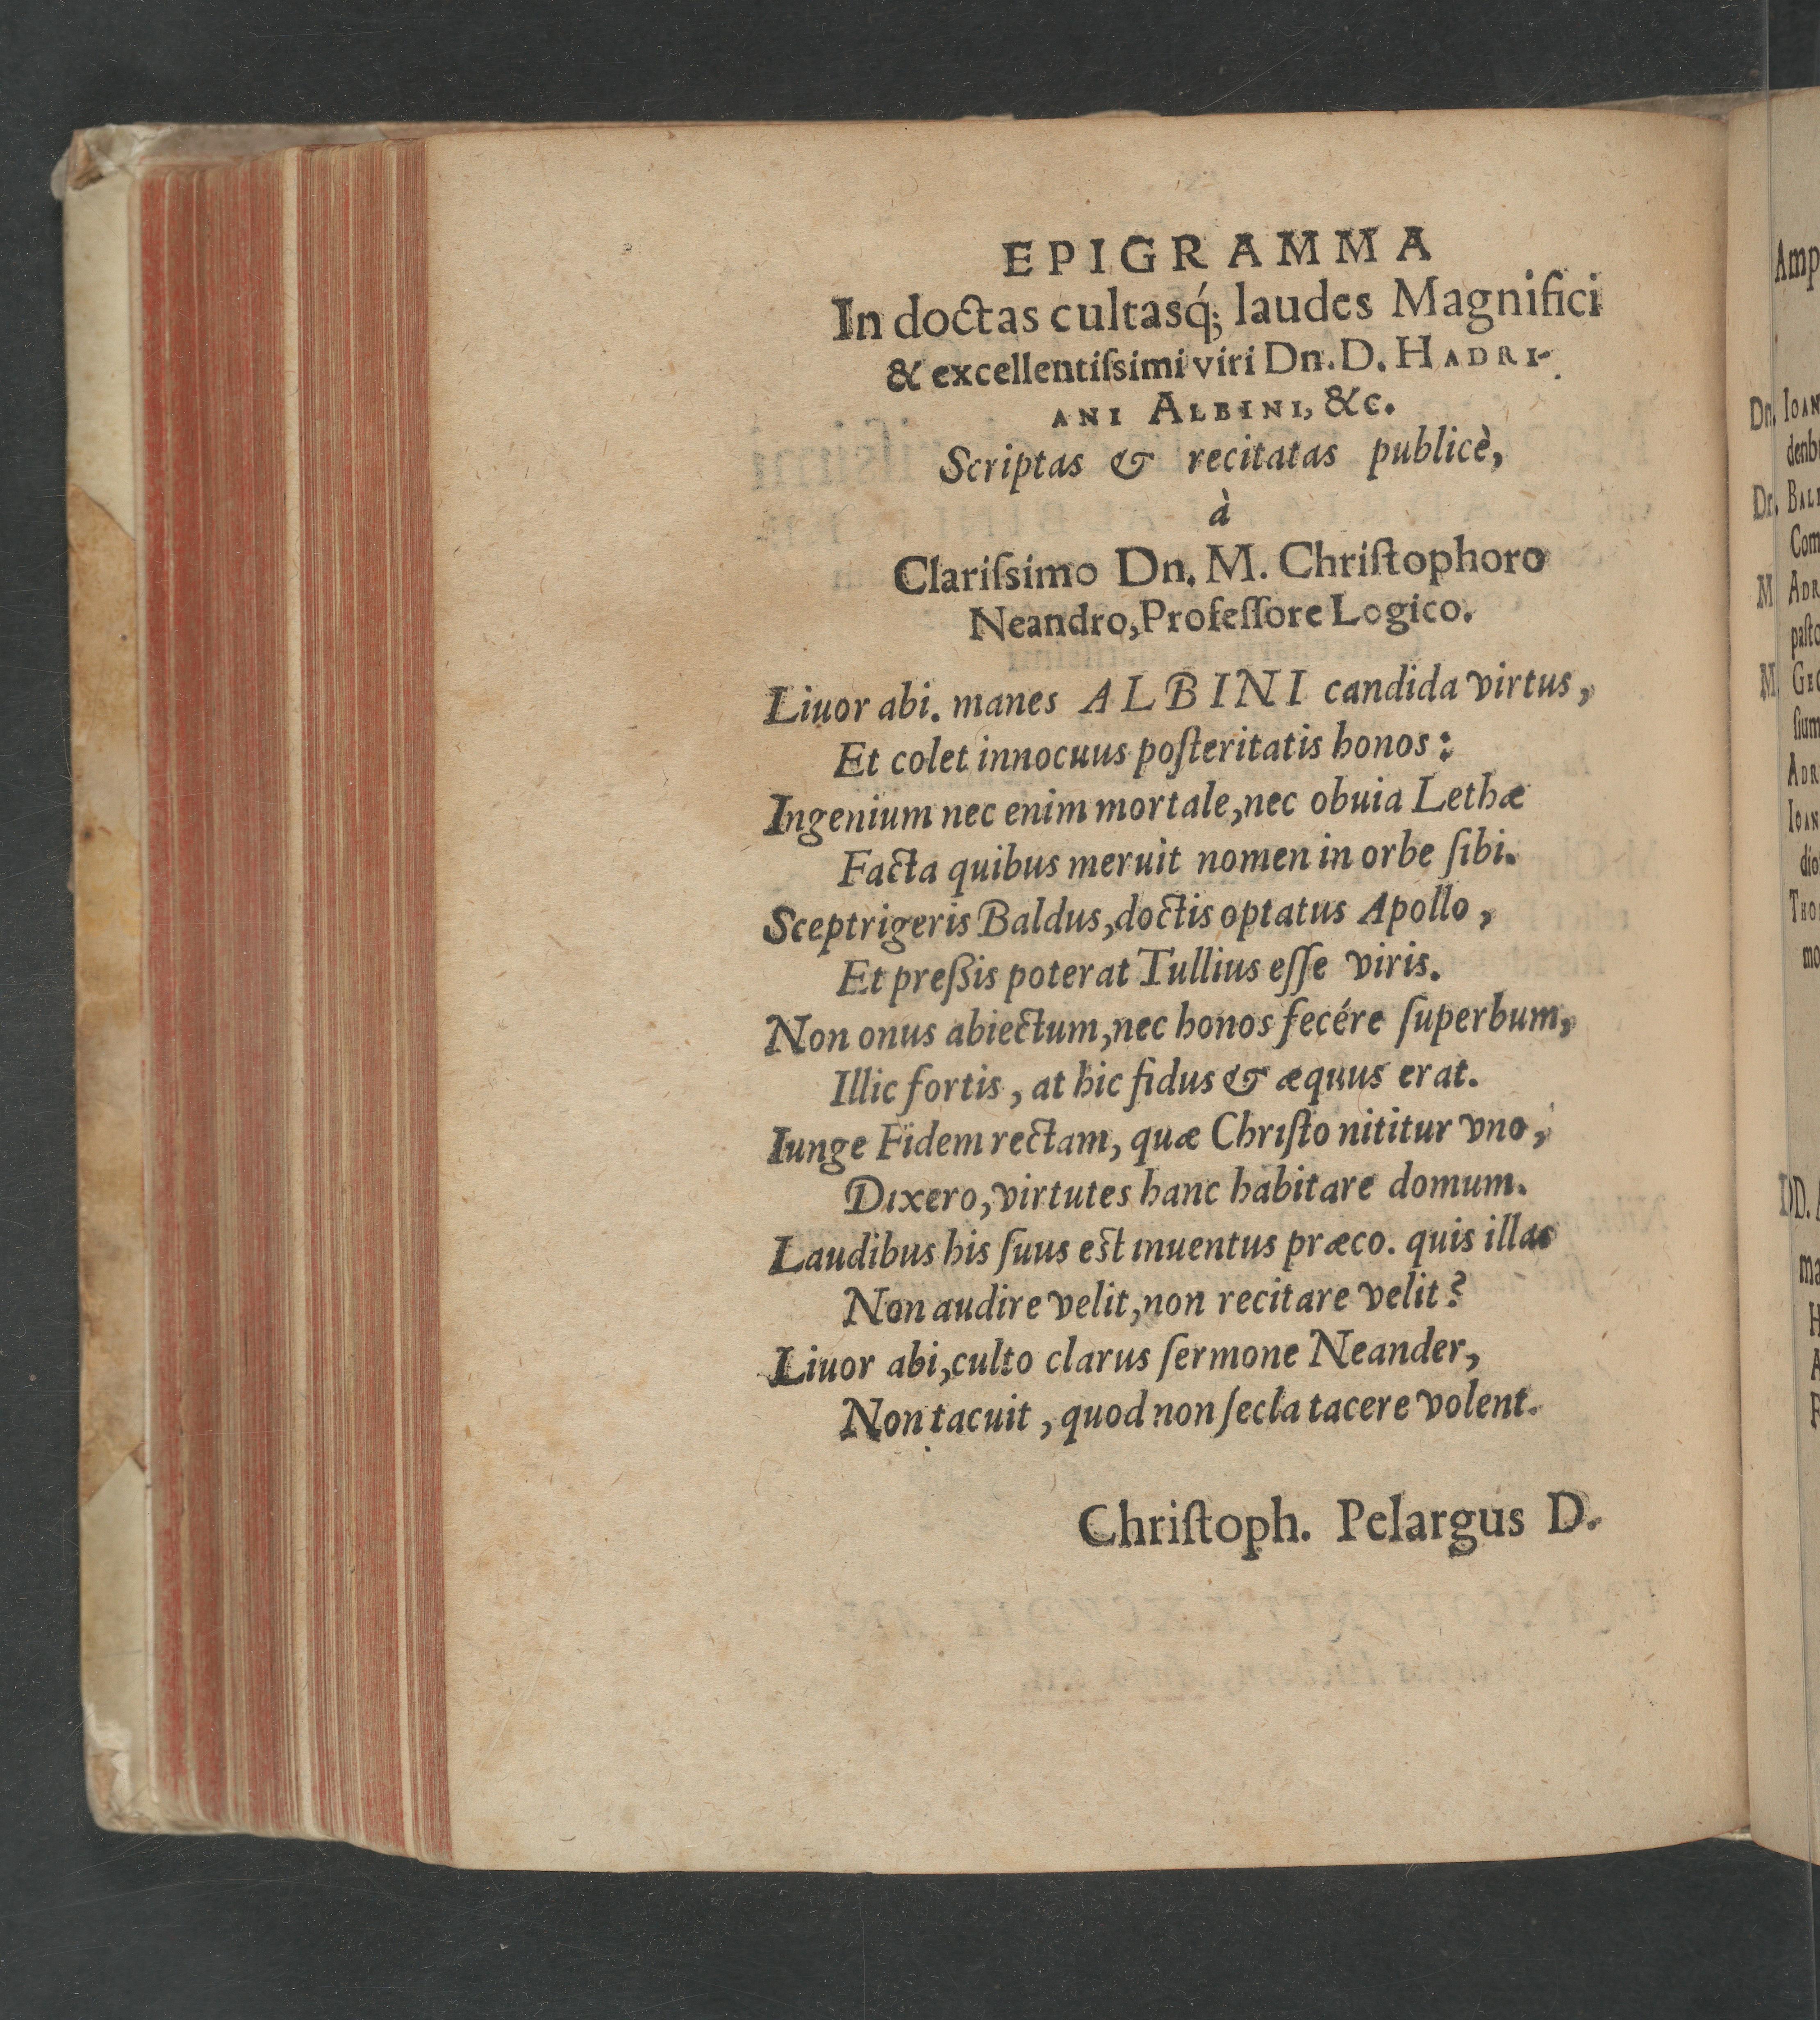 EPIGRAMMA
In doctas cultasq́; laudes Magnifici
& excellentiſsimi viri Dn. D. HADRI-
ANI ALBINI, &c.
Scriptas & recitatas publicè,
à
Clariſsimo Dn. M. Chriſtophoro
Neandro, Profeſſore Logico.
Liuor abi. manes ALBINI candida virtus,
Et colet innocuus poſteritatis honos:
Ingenium nec enim mortale, nec obuia Lethæ
Facta quibus meruit nomen in orbe ſibi.
Sceptrigeris Baldus, doctis optatus Apollo,
Et preßis poterat Tullius eſſe viris.
Non onus abiectum, nec honos fecére ſuperbum,
Illic fortis, at hic fidus & æquus erat.
Iunge Fidem rectam, quæ Chriſto nititur vno,
Dixero, virtutes hanc habitare domum.
Laudibus his ſuus est inuentus præco. quis illas
Non audire velit, non recitare velit?
Liuor abi, culto clarus ſermone Neander,
Non tacuit, quod non ſecla tacere volent.
Chriſtoph. Pelargus D.
Amp
Dn. IOAN
denb
Dr. BAL
Com
M ADR
paſto
M. GEO
ſium
ADR
IOAN
dio
THO
mo
DD.
ma
H
A